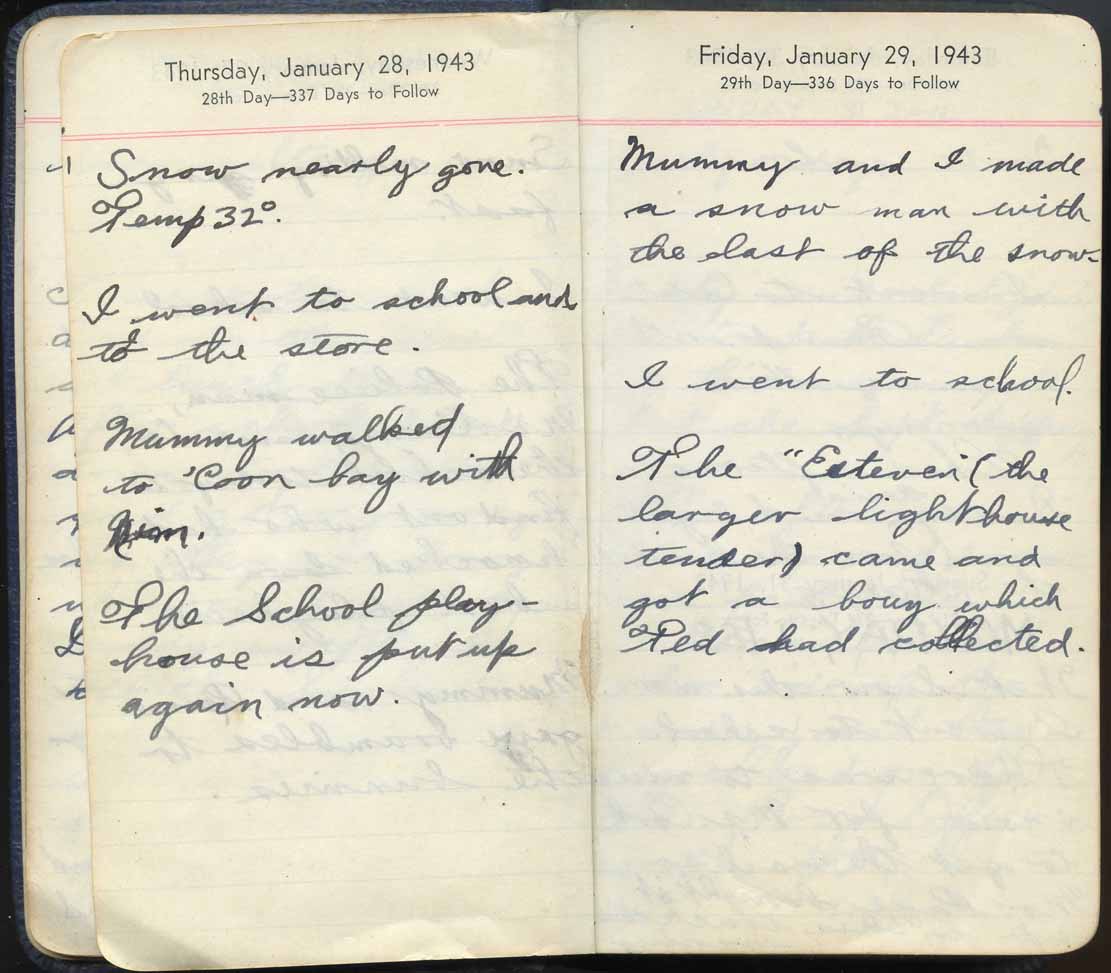 Thursday, January 28, 1943
28th Day—337 Days to Follow
Snow nearly gone.
Temp 32°.
I went to school and
to the store.
Mummy walked
to 'Coon bay with
him.
The School play-
house is put up
again now.
Friday, January 29, 1943
29th Day—336 Days to Follow
Mummy and I made
a snow man with
the last of the snow-
I went to school.
The "Estevan" (the
larger lighthouse
tender) came and
got a bouy which
Ted had collected.